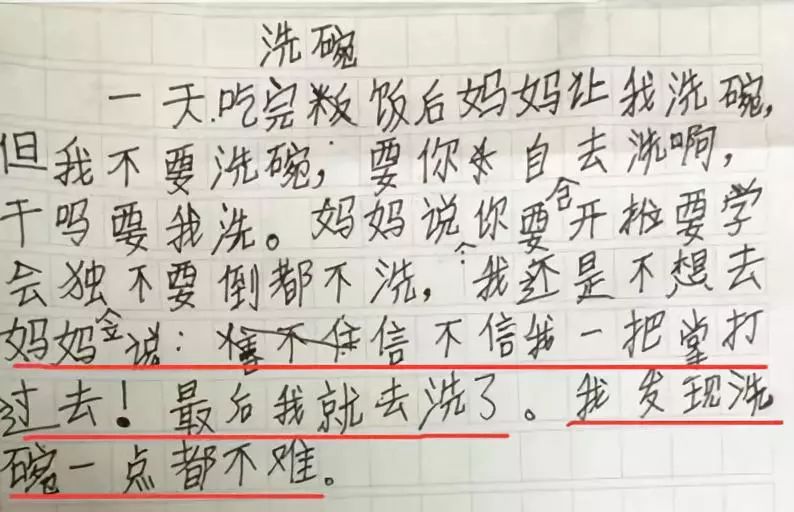 洗碗
一天.吃完饭后妈妈让我洗碗,
但我不要洗碗,要你自去洗啊,
干吗要我洗。妈妈说你要开要学
会独不要倒都不洗,我还是不想去
妈妈说:信不信我一把掌打
过去!最后我就去洗了。我发现洗
碗一点都不难。